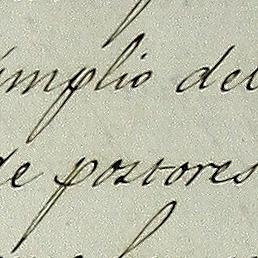 implio del
de postores